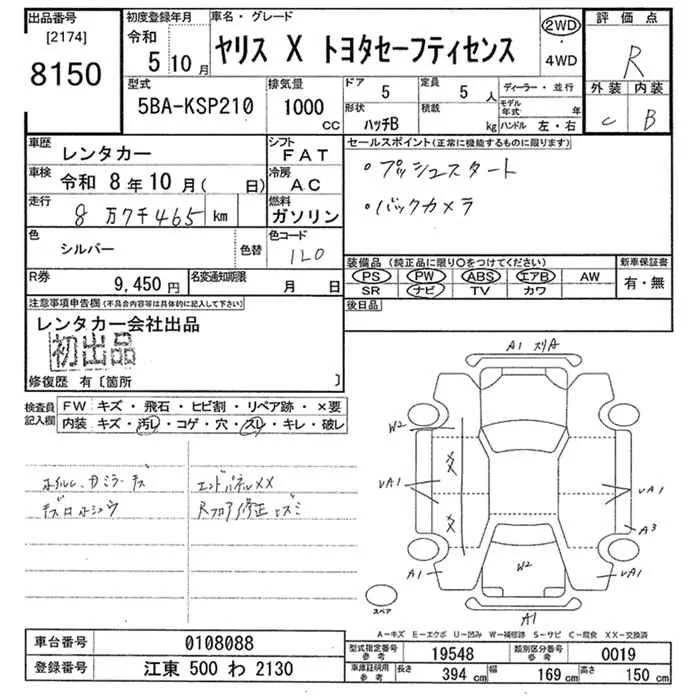 出品番号
[2174]
8150
初度登録年月
令和
5 10月
車名・グレード
ヤリス X トヨタセーフティセンス
2WD
・
4WD
評価点
R
外装 内装
C B
型式
5BA-KSP210
排気量
1000
CC
ドア
5
定員
5 人
ディーラー・並行
モデル年式 年
ハンドル 左・右
形状
ハッチB
積載
kg
車歴
レンタカー
シフト
FAT
車検
令和 8年10月( 日)
冷房
AC
走行
8万7千465 km
燃料
ガソリン
色
シルバー
色替
色コード
1L0
R券
9,450円
名変通知期限
月 日
セールスポイント(正常に機能するものに限ります)
・プッシュスタート
・バックカメラ
装備品(純正品に限り○をつけてください)
PS PW ABS エアB AW
SR ナビ TV カワ
新車保証書
有・無
後日品
注意事項申告欄(不具合内容等は具体的に記入して下さい)
レンタカー会社出品
初出品
修復歴 有〔箇所 〕
検査員記入欄
FW キズ・飛石・ヒビ割・リペア跡・×要
内装 キズ・汚レ・コゲ・穴・スレ・キレ・破レ
エンドパネルXX
Rフロア修正
A1 スリA
W2
UA1
XX
XX
UA1
A3
A1
W2
UA1
A1
スペア
A-キズ E-エクボ U-凹み W-補修跡 S-サビ C-腐食 XX-交換済
車台番号
0108088
登録番号
江東 500 わ 2130
型式指定番号
参考
19548
類別区分番号
参考
0019
車庫証明用
参考
長さ
394 cm
幅
169 cm
高さ
150 cm